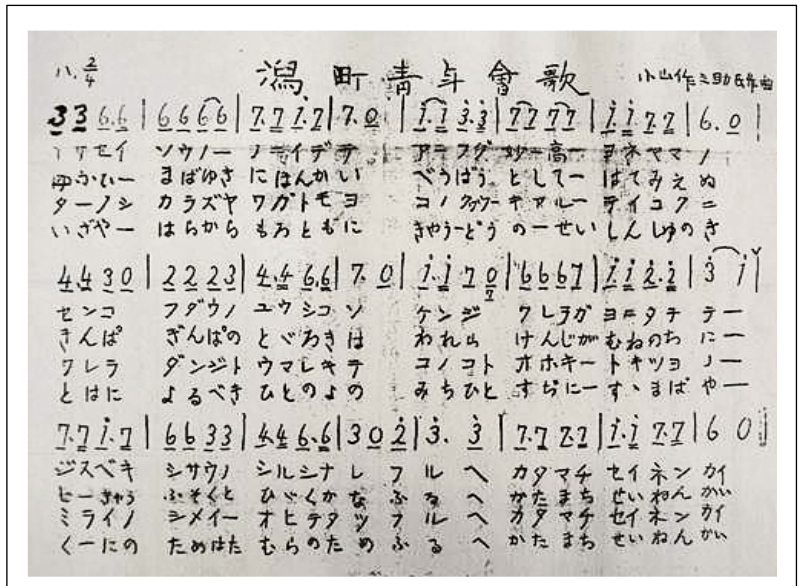 ハ. 2/4
潟町青年會歌
小山作之助氏作曲
3 3 6. 6 | 6 6 6 6 | 7. 7 i. 7 | 7. 0 | i. i 3. 3 | 7 7 7 7 | i. i 7 7 | 6. 0 |
セイ ソウノー ノ イデテ ア 妙ー高ー ヨネヤマ ノ
ひー まばゆき にほんかい べうばう としてー はてみえ ぬ
ターノシ カラズヤ ワガトモ ヨ コノ テイコク ニ
いざやー はらから もろとも に きやうーどう のーせい しんしゆの き
4. 4 3 0 | 2 2 2 3 | 4. 4 6. 6 | 7. 0 | i. i 7 0 | 6 6 6 7 | i. i 2. 2 | 3 i |
センコ フダウノ ユウシコ ソ ケンジ ワレラガ ヨニタチ テー
きんぱ ぎんぱの とどろき は われら けんじが むねのち にー
ワレラ ダンジト ウマレキ テ コノコト オホキー トキツヨ ノー
とはに よるべき ひとのよ の みちひと すぢにー すゝまば やー
7. 7 i. 7 | 6 6 3 3 | 4. 4 6. 6 | 3 0 2 | 3. 3 | 7. 7 7. 7 | i. i 7. 7 | 6 0
ジスベキ シサウノ シルシナ レ フル ヘ カタマチ セイネン カイ
ヒーきやう ふそくと ひゞくか な ふる へ かたまち せいねん かい
ミライノ シメイー オヒテタ ツ フル ヘ カタマチ セイネン カイ
くーにの ためはた むらのた め ふる へ かたまち せいねん かい